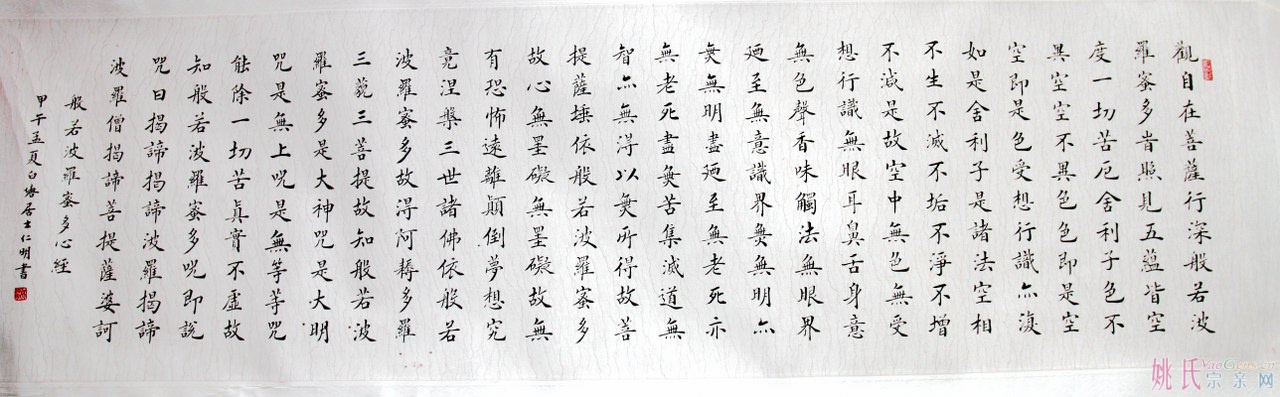 觀自在菩薩行深般若波
羅蜜多旹照見五蘊皆空
度一切苦厄舍利子色不
異空空不異色色即是空
空即是色受想行識亦復
如是舍利子是諸法空相
不生不滅不垢不淨不增
不減是故空中無色無受
想行識無眼耳鼻舌身意
無色聲香味觸法無眼界
迺至無意識界無無明亦
無無明盡迺至無老死亦
無老死盡無苦集滅道無
智亦無得以無所得故菩
提薩埵依般若波羅蜜多
故心無罣礙無罣礙故無
有恐怖遠離顛倒夢想究
竟涅槃三世諸佛依般若
波羅蜜多故得阿耨多羅
三藐三菩提故知般若波
羅蜜多是大神咒是大明
咒是無上咒是無等等咒
能除一切苦真實不虛故
知般若波羅蜜多咒即說
咒曰揭諦揭諦波羅揭諦
波羅僧揭諦菩提薩婆訶
般若波羅蜜多心經
甲午孟夏白居士仁明書
姚氏宗亲网
YaoGens.cn